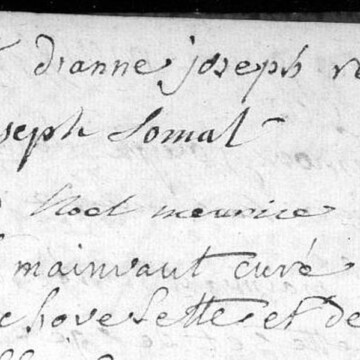 dianne joseph
seph Lomal
Noel meurice
mainvaut curé
chovelette et de